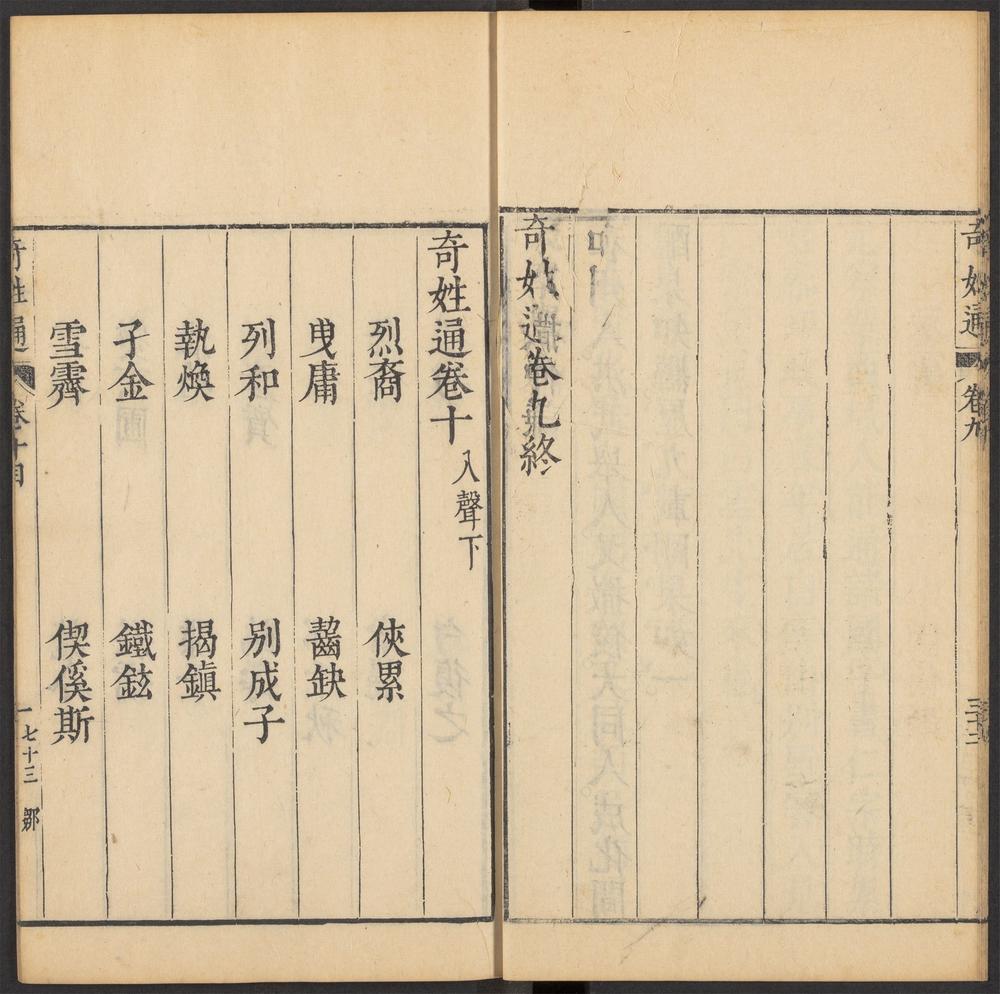 奇姓通 卷九
奇姓通卷九終
奇姓通卷十 入聲下
烈裔 俠累
曳庸 齧缺
列和 别成子
執煥 揭鎮
子金 鐵鉉
雪霽 偰傒斯
奇姓通 卷十目 一 七十三 鄒